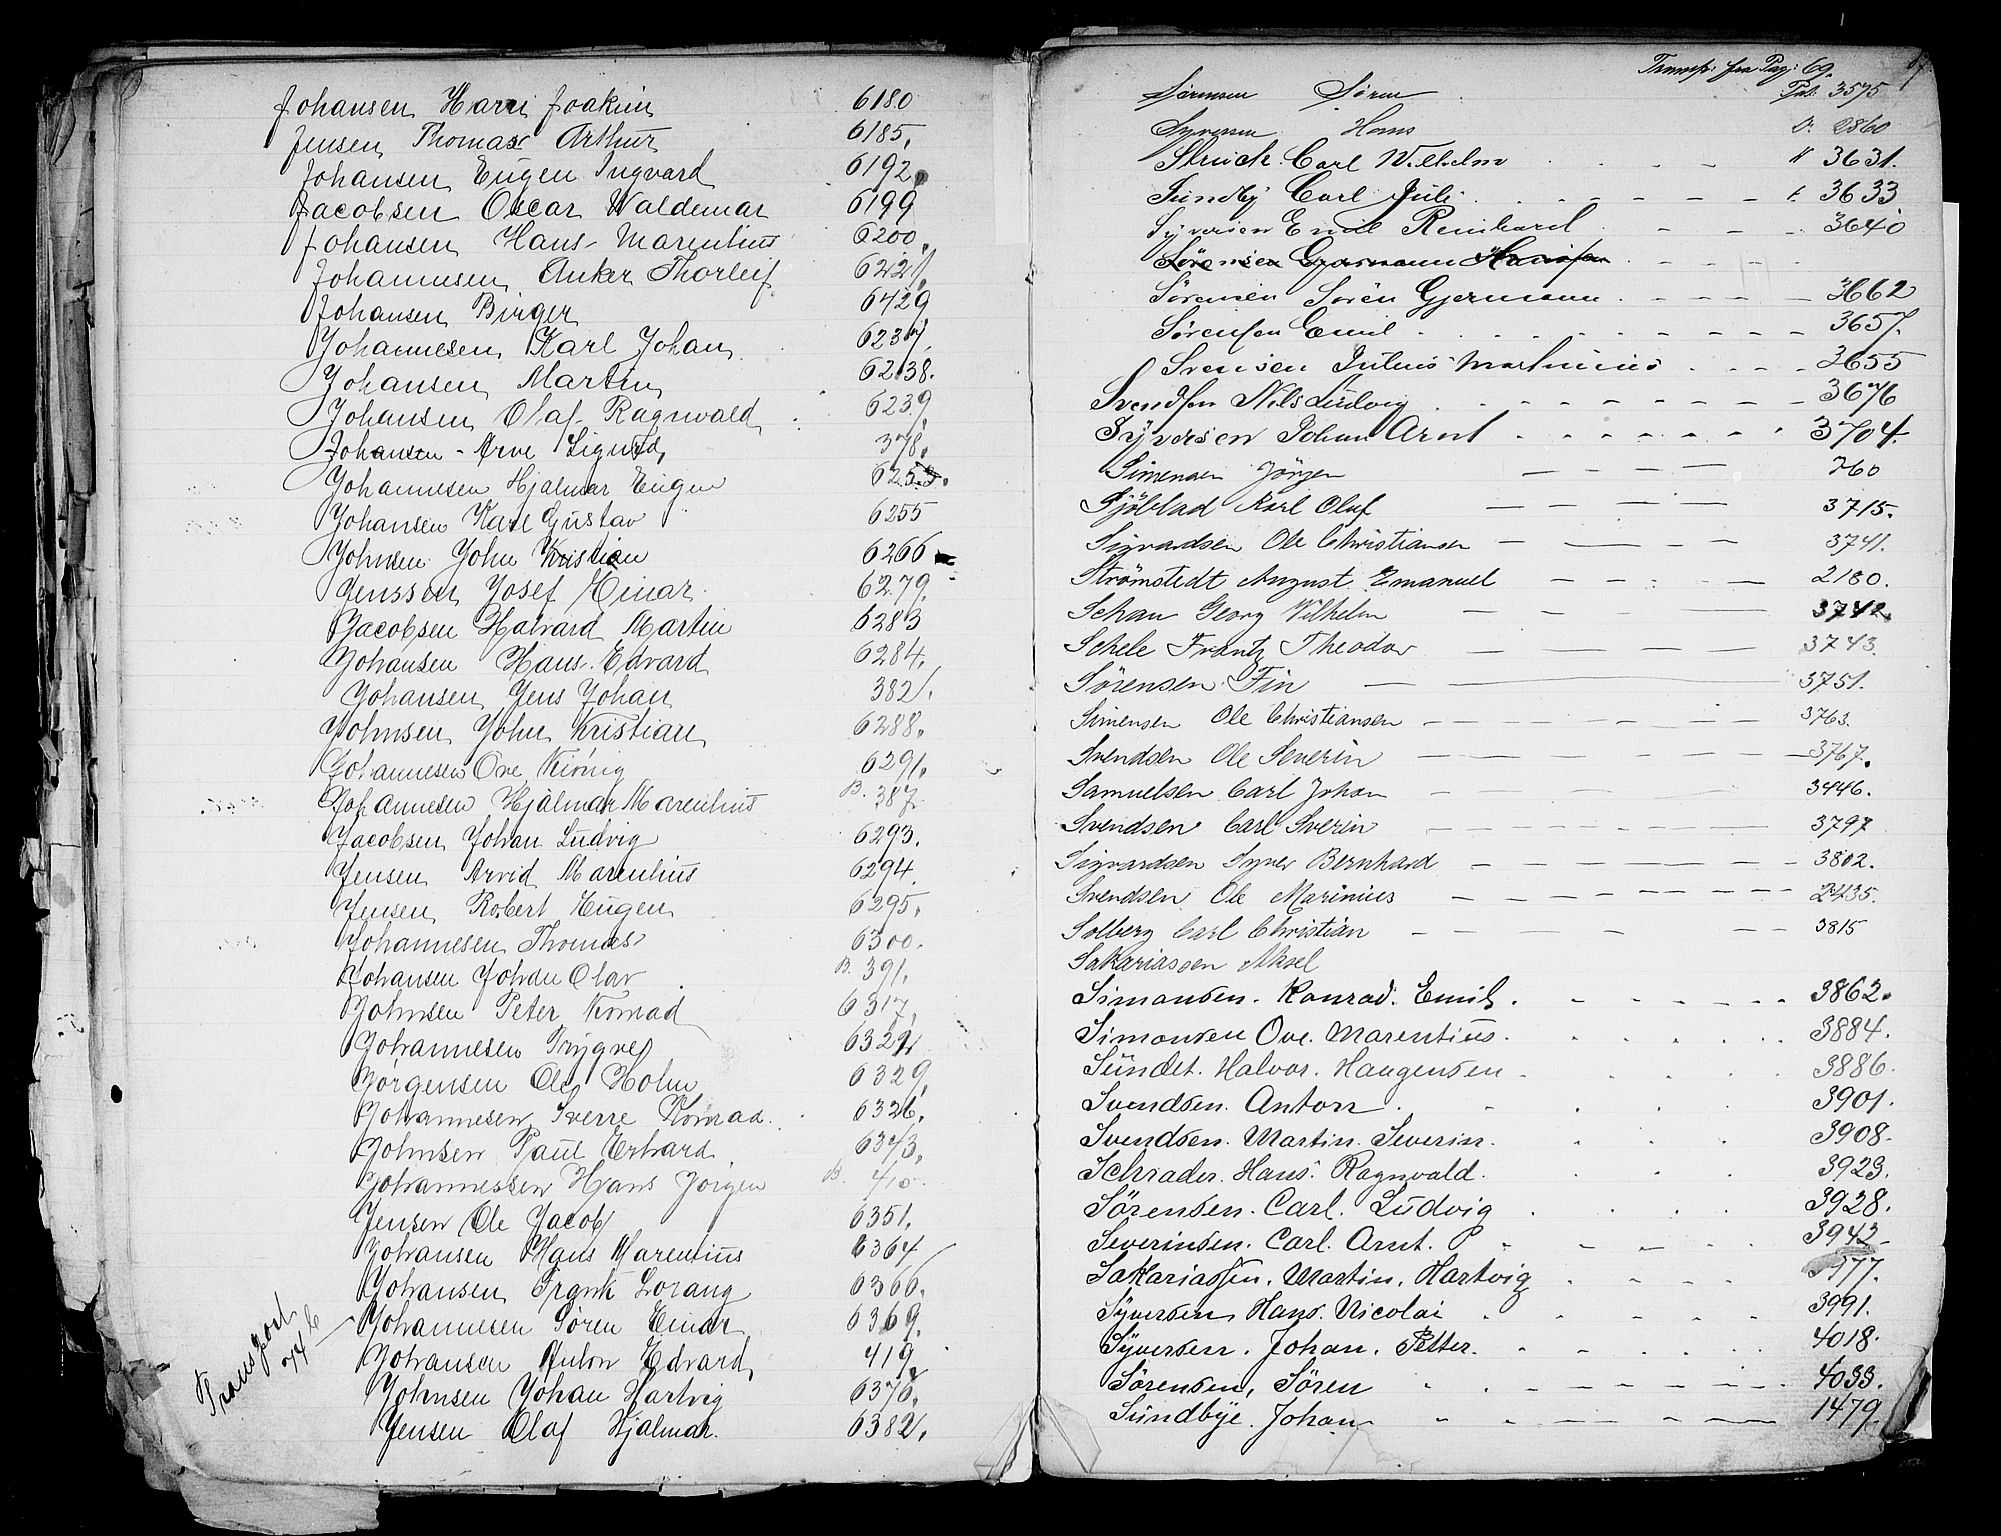 Johansen Harri Joakim 6180
Jensen Thomas Arthur 6185.
Johansen Eugen Ingvard 6192
Jacobsen Oscar Waldemar 6199
Johansen Hans Marentius 6200.
Johannesen Anker Thorleif 6221.
Johansen Birger 6429
Johannesen Karl Johan 6237.
Johansen Martin 6238.
Johansen Olaf Ragnvald 6239.
Johansen Arve Sigurd 378.
Johannesen Hjalmar Eugen 6253.
Johansen Karl Gustav 6255
Johnsen John Kristian 6266
Jenssen Josef Einar 6279.
Jacobsen Halvard Martin 6283
Johansen Hans Edvard 6284.
Johansen Jens Johan 382.
Johnsen John Kristian 6288.
Johannesen Ove König 6291.
Johannesen Hjalmar Marentius B. 387
Jacobsen Johan Ludvig 6293.
Jensen Arvid Marentius 6294
Jensen Robert Eugen 6295.
Johannesen Thomas 6300.
Johansen Johan Olav B. 391.
Johnsen Peter Konrad 6317,
Johannesen Trygve 6321
Jørgensen Ole Holm 6329,
Johannesen Sverre Konrad 6326.
Johnsen Paul Erhard 6343.
Johannessen Hans Jørgen B. 410.
Jensen Ole Jacob 6351.
Johansen Hans Marentius 6364
Johansen Frank Lorang 6366.
Johannesen Søren Einar 6369.
Johansen Anton Edvard 419
Johnsen Johan Hartvig 6376.
Jensen Olaf Hjalmar. 6382.
Transport 74 b
Transp: fra Pag: 69.
Sørensen Søren Pat: 3575
Syversen Hans O. 2860
Struck Carl Wilhelm " 3631.
Sundby Carl Juli 3633
Syversen Emil Reinhard 3640
Sørensen Gjermann
Sørensen Sören Gjermann 3662
Sörensen Emil 3657.
Svensen Julius Martinius 3655
Svendsen Nils Ludvig 3676
Syversen Johan Arnt 3704.
Simensen Jörgen 760
Sjöblad Karl Oluf 3715.
Sigvardsen Ole Christiansen 3741.
Strömstedt August Emanuel 2180.
Schau Georg Vilhelm 3742.
Schele Frantz Theodor 3743.
Sørensen Fin 3751.
Simensen Ole Christiansen 3763.
Svendsen Ole Severin 3767.
Samuelsen Carl Johan 3446.
Svendsen Carl Sverin 3797
Sigvardsen Syver Bernhard 3802.
Svendsen Ole Marinius 2435.
Solberg Carl Christian 3815
Sakariassen Aksel
Simonsen. Konrad. Emil. 3862.
Simonsen Ove. Marentius. 3884.
Sundet. Halvor. Haugensen 3886.
Svendsen. Anton. 3901.
Svendsen. Martin. Severin. 3908.
Schrader. Hans. Ragnvald. 3923.
Sørensen. Carl. Ludvig 3928.
Severinsen. Carl. Arnt. P 3942
Sakariassen. Martin. Hartvig 3977.
Syversen Hans. Nicolai 3991.
Syversen. Johan. Petter. 4018.
Sørensen, Søren 4033.
Sundbye. Johan 1479